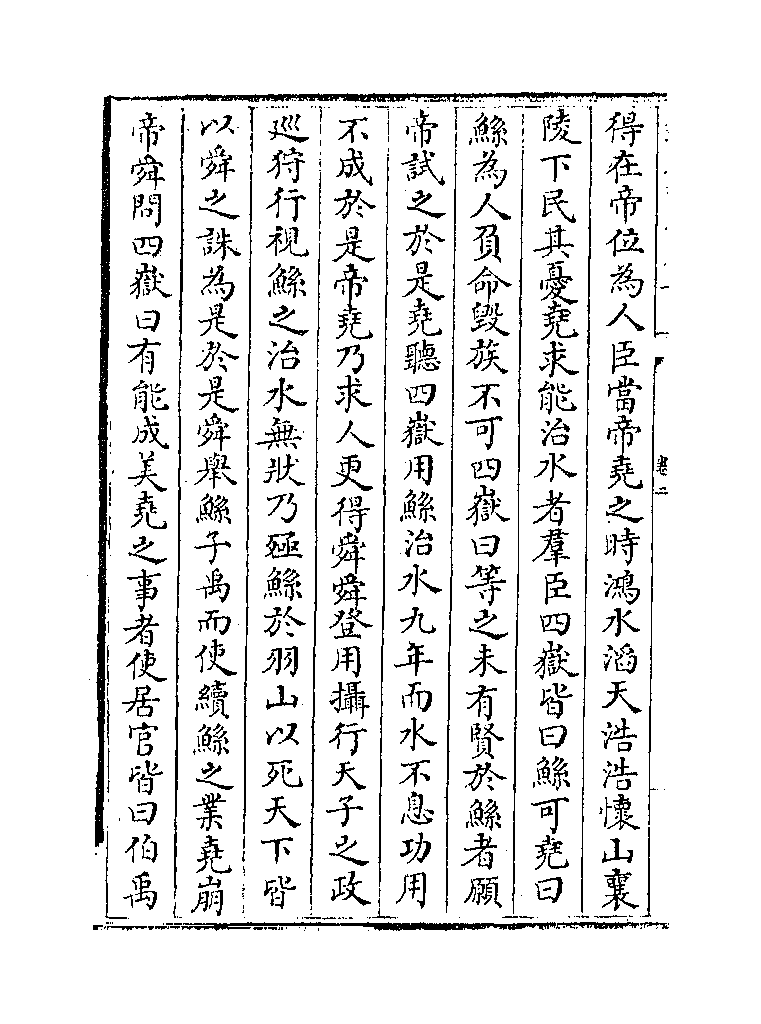 得在帝位為人臣當帝堯之時鴻水滔天浩浩懷山襄
陵下民其憂堯求能治水者羣臣四嶽皆曰鯀可堯曰
鯀為人負命毀族不可四嶽曰等之未有賢於鯀者願
帝試之於是堯聽四嶽用鯀治水九年而水不息功用
不成於是帝堯乃求人更得舜舜登用攝行天子之政
巡狩行視鯀之治水無狀乃殛鯀於羽山以死天下皆
以舜之誅為是於是舜舉鯀子禹而使續鯀之業堯崩
帝舜問四嶽曰有能成美堯之事者使居官皆曰伯禹
卷二